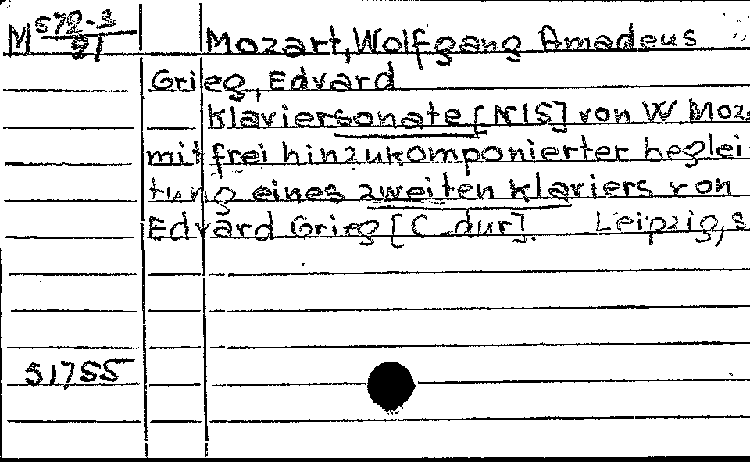 M 572-3
91
Mozart, Wolfgang Amadeus
Grieg, Edvard
Klaviersonate [N15] von W Moz
mit frei hinzukomponierter beglei-
tung eines zweiten klaviers von
Edvard Grieg [C dur]. Leipzig, s
51755